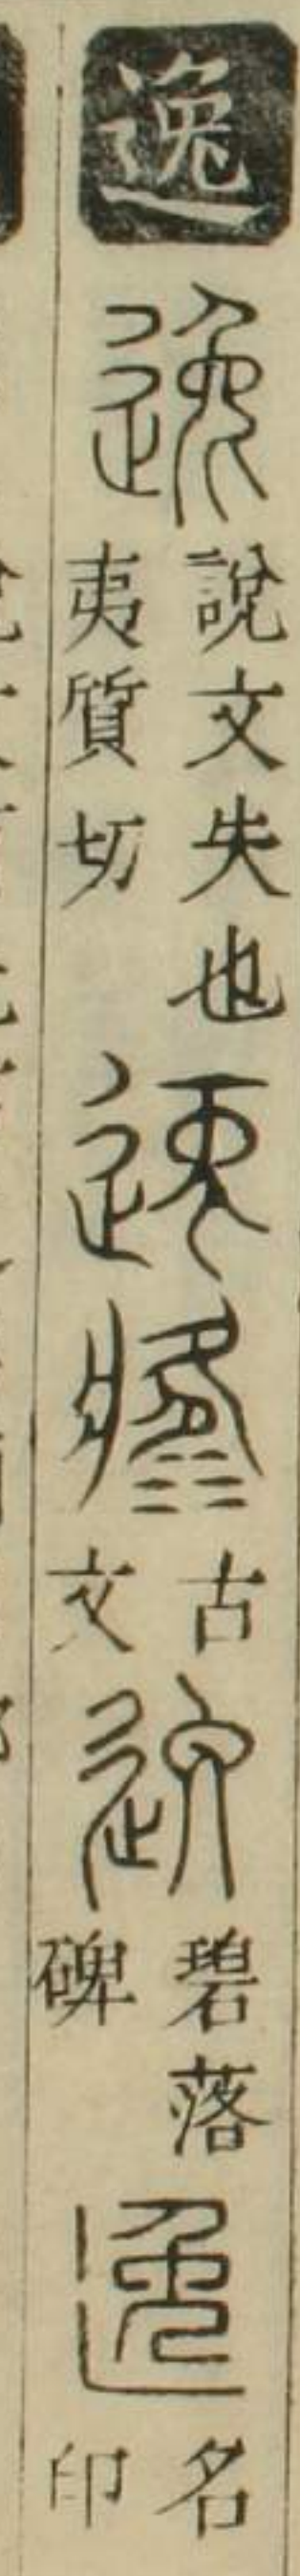 逸
說文失也
夷質切
古文
碧落碑
名印